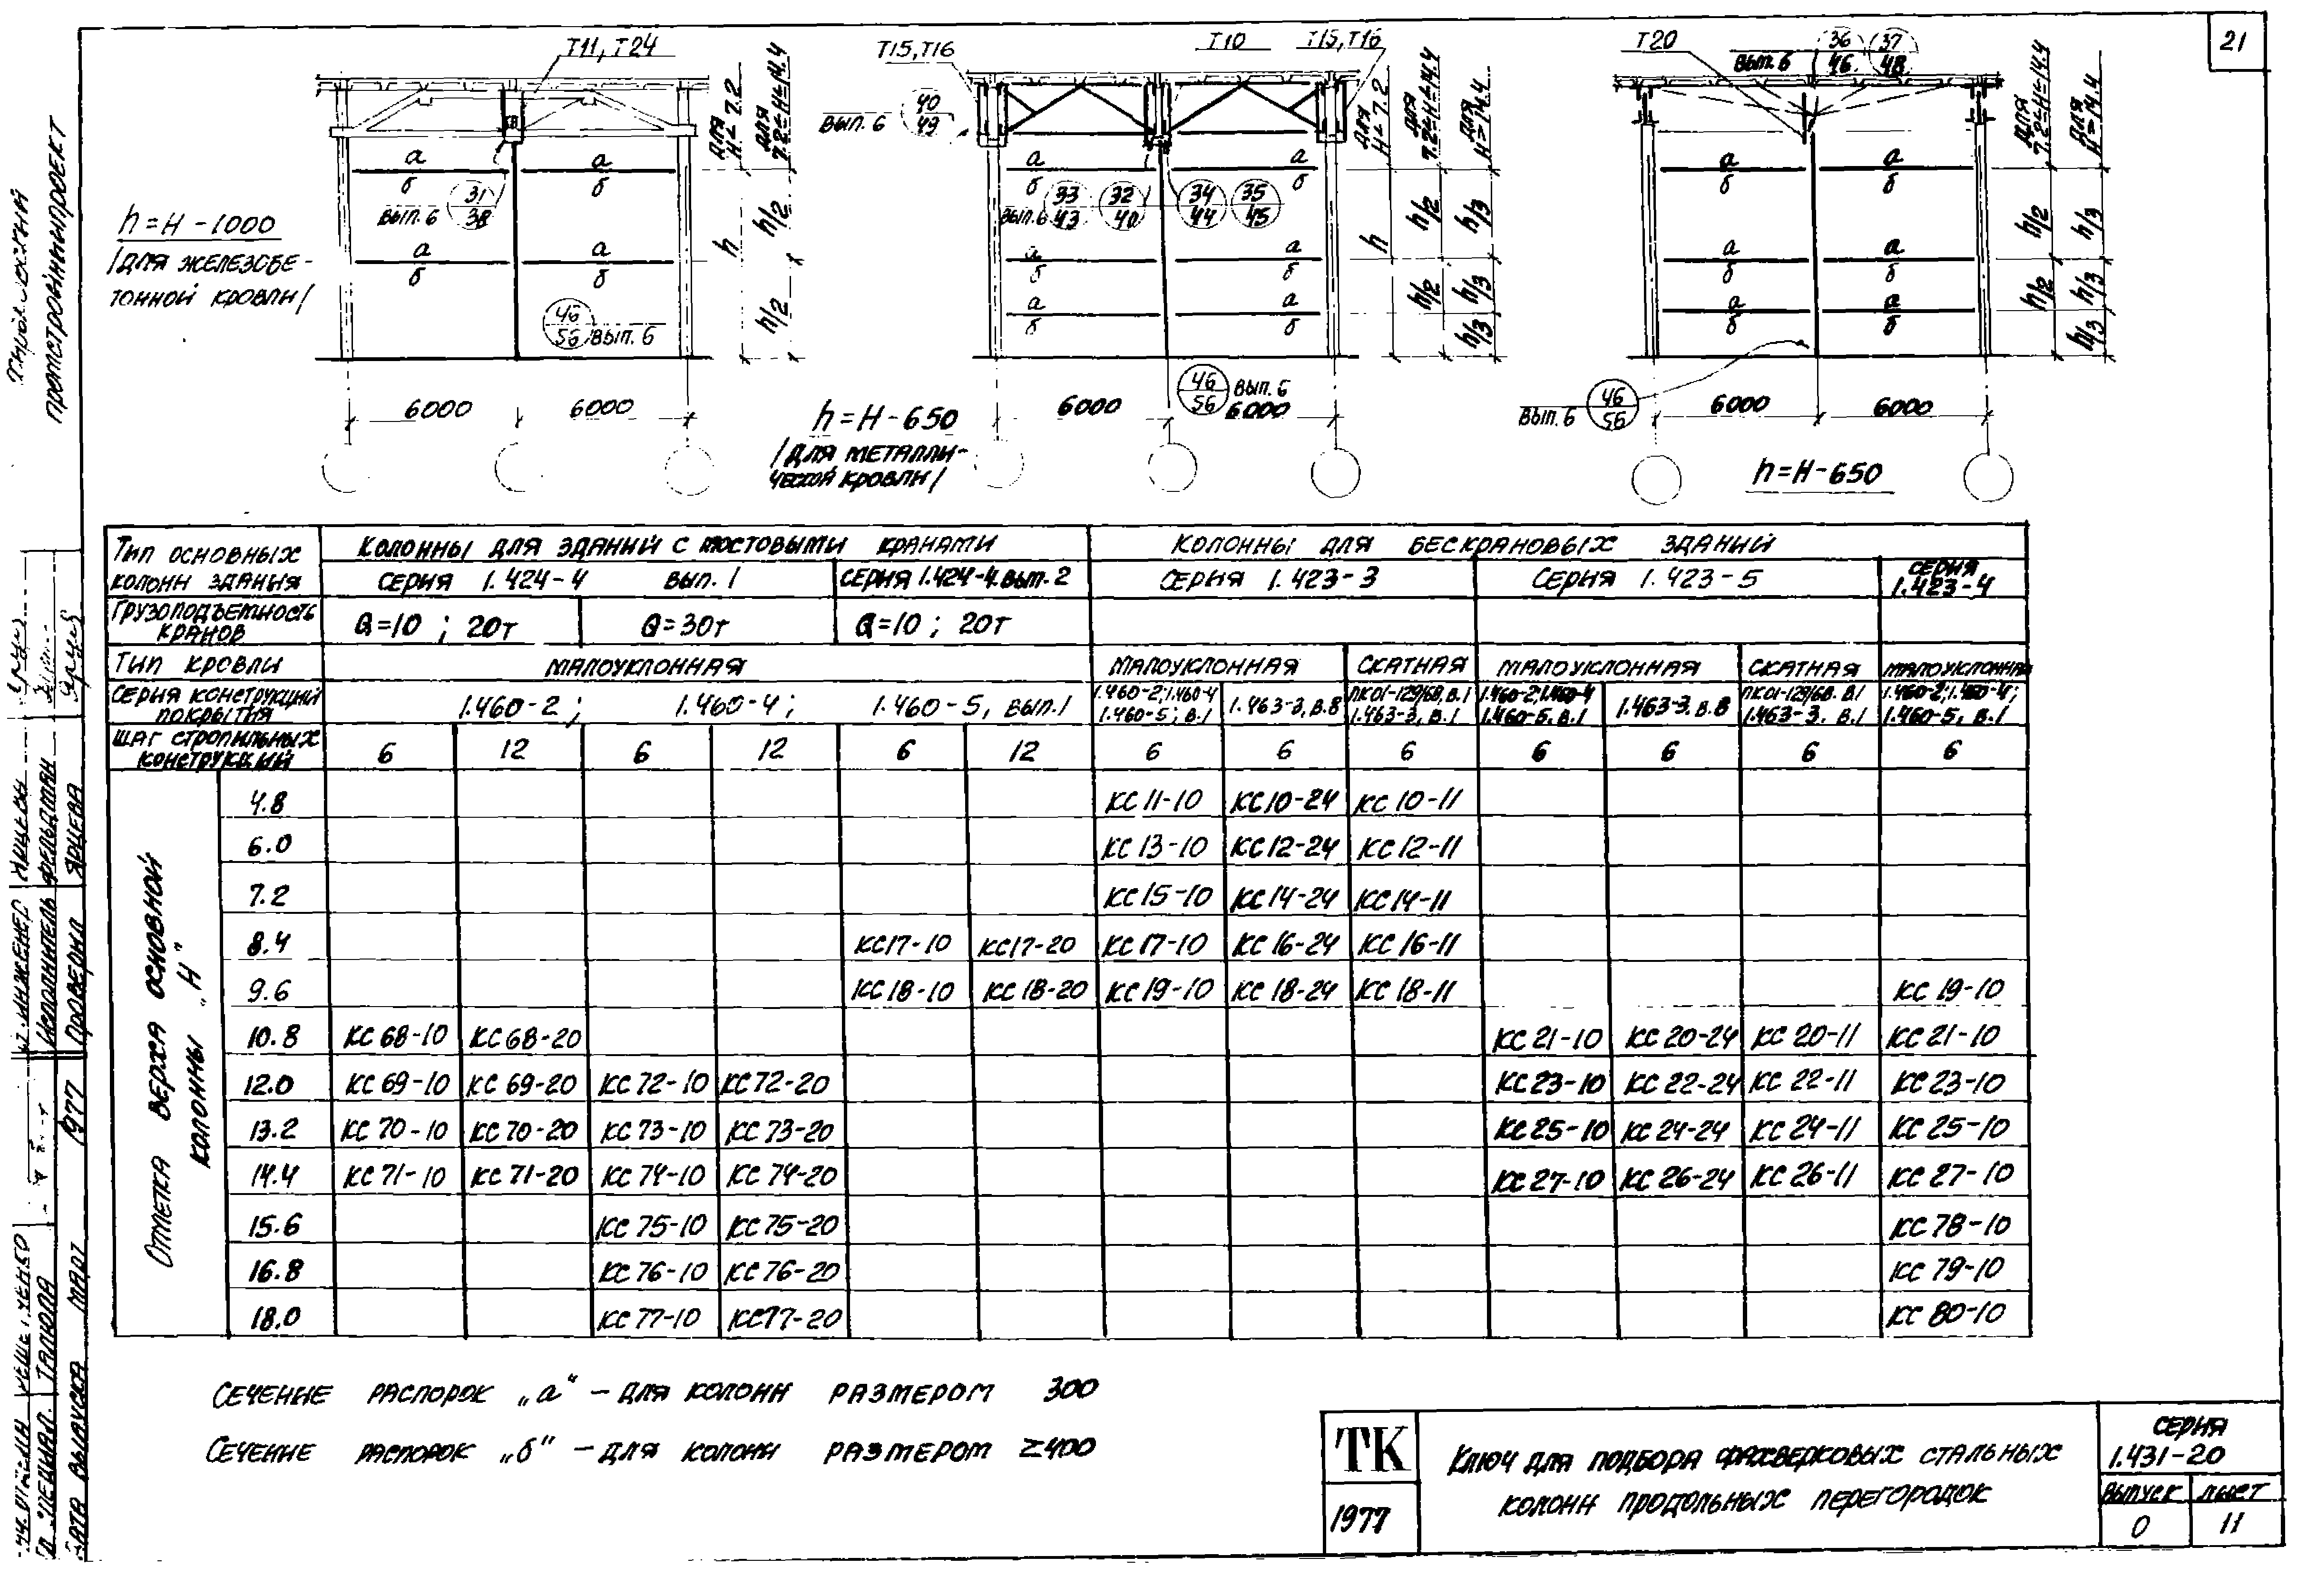 21
Т11, Т24
Для H<7.2
Для 7.2≤H≤14.4
h=H-1000
/для железобе-
тонной кровли/
а
б
а
б
31
38
вып. 6
а
б
а
б
46
56
вып. 6
h
h/2
h/2
6000
6000
Т15, Т16
Т10
Т15, Т16
40
49
вып. 6
Для H<7.2
Для 7.2≤H≤14.4
Для H>14.4
а
б
а
б
вып. 6
33
43
32
40
34
44
35
45
а
б
а
б
а
б
а
б
h
h/2
h/2
h/3
h/3
h/3
46
56
вып. 6
6000
6000
h=H-650
/для металли-
ческой кровли/
Т20
вып. 6
36
46
37
48
Для 7.2≤H≤14.4
Для H>14.4
а
б
а
б
а
б
а
б
а
б
а
б
h/2
h/2
h/3
h/3
h/3
вып. 6
46
56
6000
6000
h=H-650
Тип основных колонн здания
Колонны для зданий с мостовыми кранами
Колонны для бескрановых зданий
серия 1.424-4 вып. 1
серия 1.424-4. вып. 2
серия 1.423-3
серия 1.423-5
серия 1.423-4
Грузоподъемность кранов
Q=10 ; 20т
Q=30т
Q=10 ; 20т
Тип кровли
малоуклонная
малоуклонная
скатная
малоуклонная
скатная
малоуклонная
Серия конструкций покрытия
1.460-2; 1.460-4; 1.460-5, вып.1
1.460-2; 1.460-4 1.460-5; в.1
1.463-3, в.8
ПК01-129/68, в.1 1.463-3, в.1
1.460-2; 1.460-4 1.460-5. в.1
1.463-3. в.8
ПК01-129/68. в.1 1.463-3. в.1
1.460-2; 1.460-4; 1.460-5, в.1
Шаг стропильных конструкций
6 12 6 12 6 12 6 6 6 6 6 6 6
Отметка верха основной колонны „H"
4.8 КС11-10 КС10-24 КС10-11
6.0 КС13-10 КС12-24 КС12-11
7.2 КС15-10 КС14-24 КС14-11
8.4 КС17-10 КС17-20 КС17-10 КС16-24 КС16-11
9.6 КС18-10 КС18-20 КС19-10 КС18-24 КС18-11 КС19-10
10.8 КС68-10 КС68-20 КС21-10 КС20-24 КС20-11 КС21-10
12.0 КС69-10 КС69-20 КС72-10 КС72-20 КС23-10 КС22-24 КС22-11 КС23-10
13.2 КС70-10 КС70-20 КС73-10 КС73-20 КС25-10 КС24-24 КС24-11 КС25-10
14.4 КС71-10 КС71-20 КС74-10 КС74-20 КС27-10 КС26-24 КС26-11 КС27-10
15.6 КС75-10 КС75-20 КС78-10
16.8 КС76-10 КС76-20 КС79-10
18.0 КС77-10 КС77-20 КС80-10
Сечение распорок „а" – для колонн размером 300
Сечение распорок „б" – для колонн размером ≥400
ТК
1977
Ключ для подбора фахверковых стальных
колонн продольных перегородок
серия
1.431-20
выпуск
лист
0
11
Харьковский
Промстройниипроект
Фельдман
Ярцева
Исполнитель
Проверил
1977
март
Дата выпуска